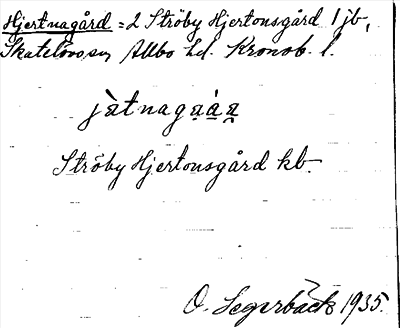 Hjertnagård = 2 Ströby Hjertonsgård 1 jb,
Skatelövs sn, Allbo hd. Kronob. l.
jàtnagạạ́ṛ
Ströby Hjertonsgård kb.
O. Segerbäck 1935.